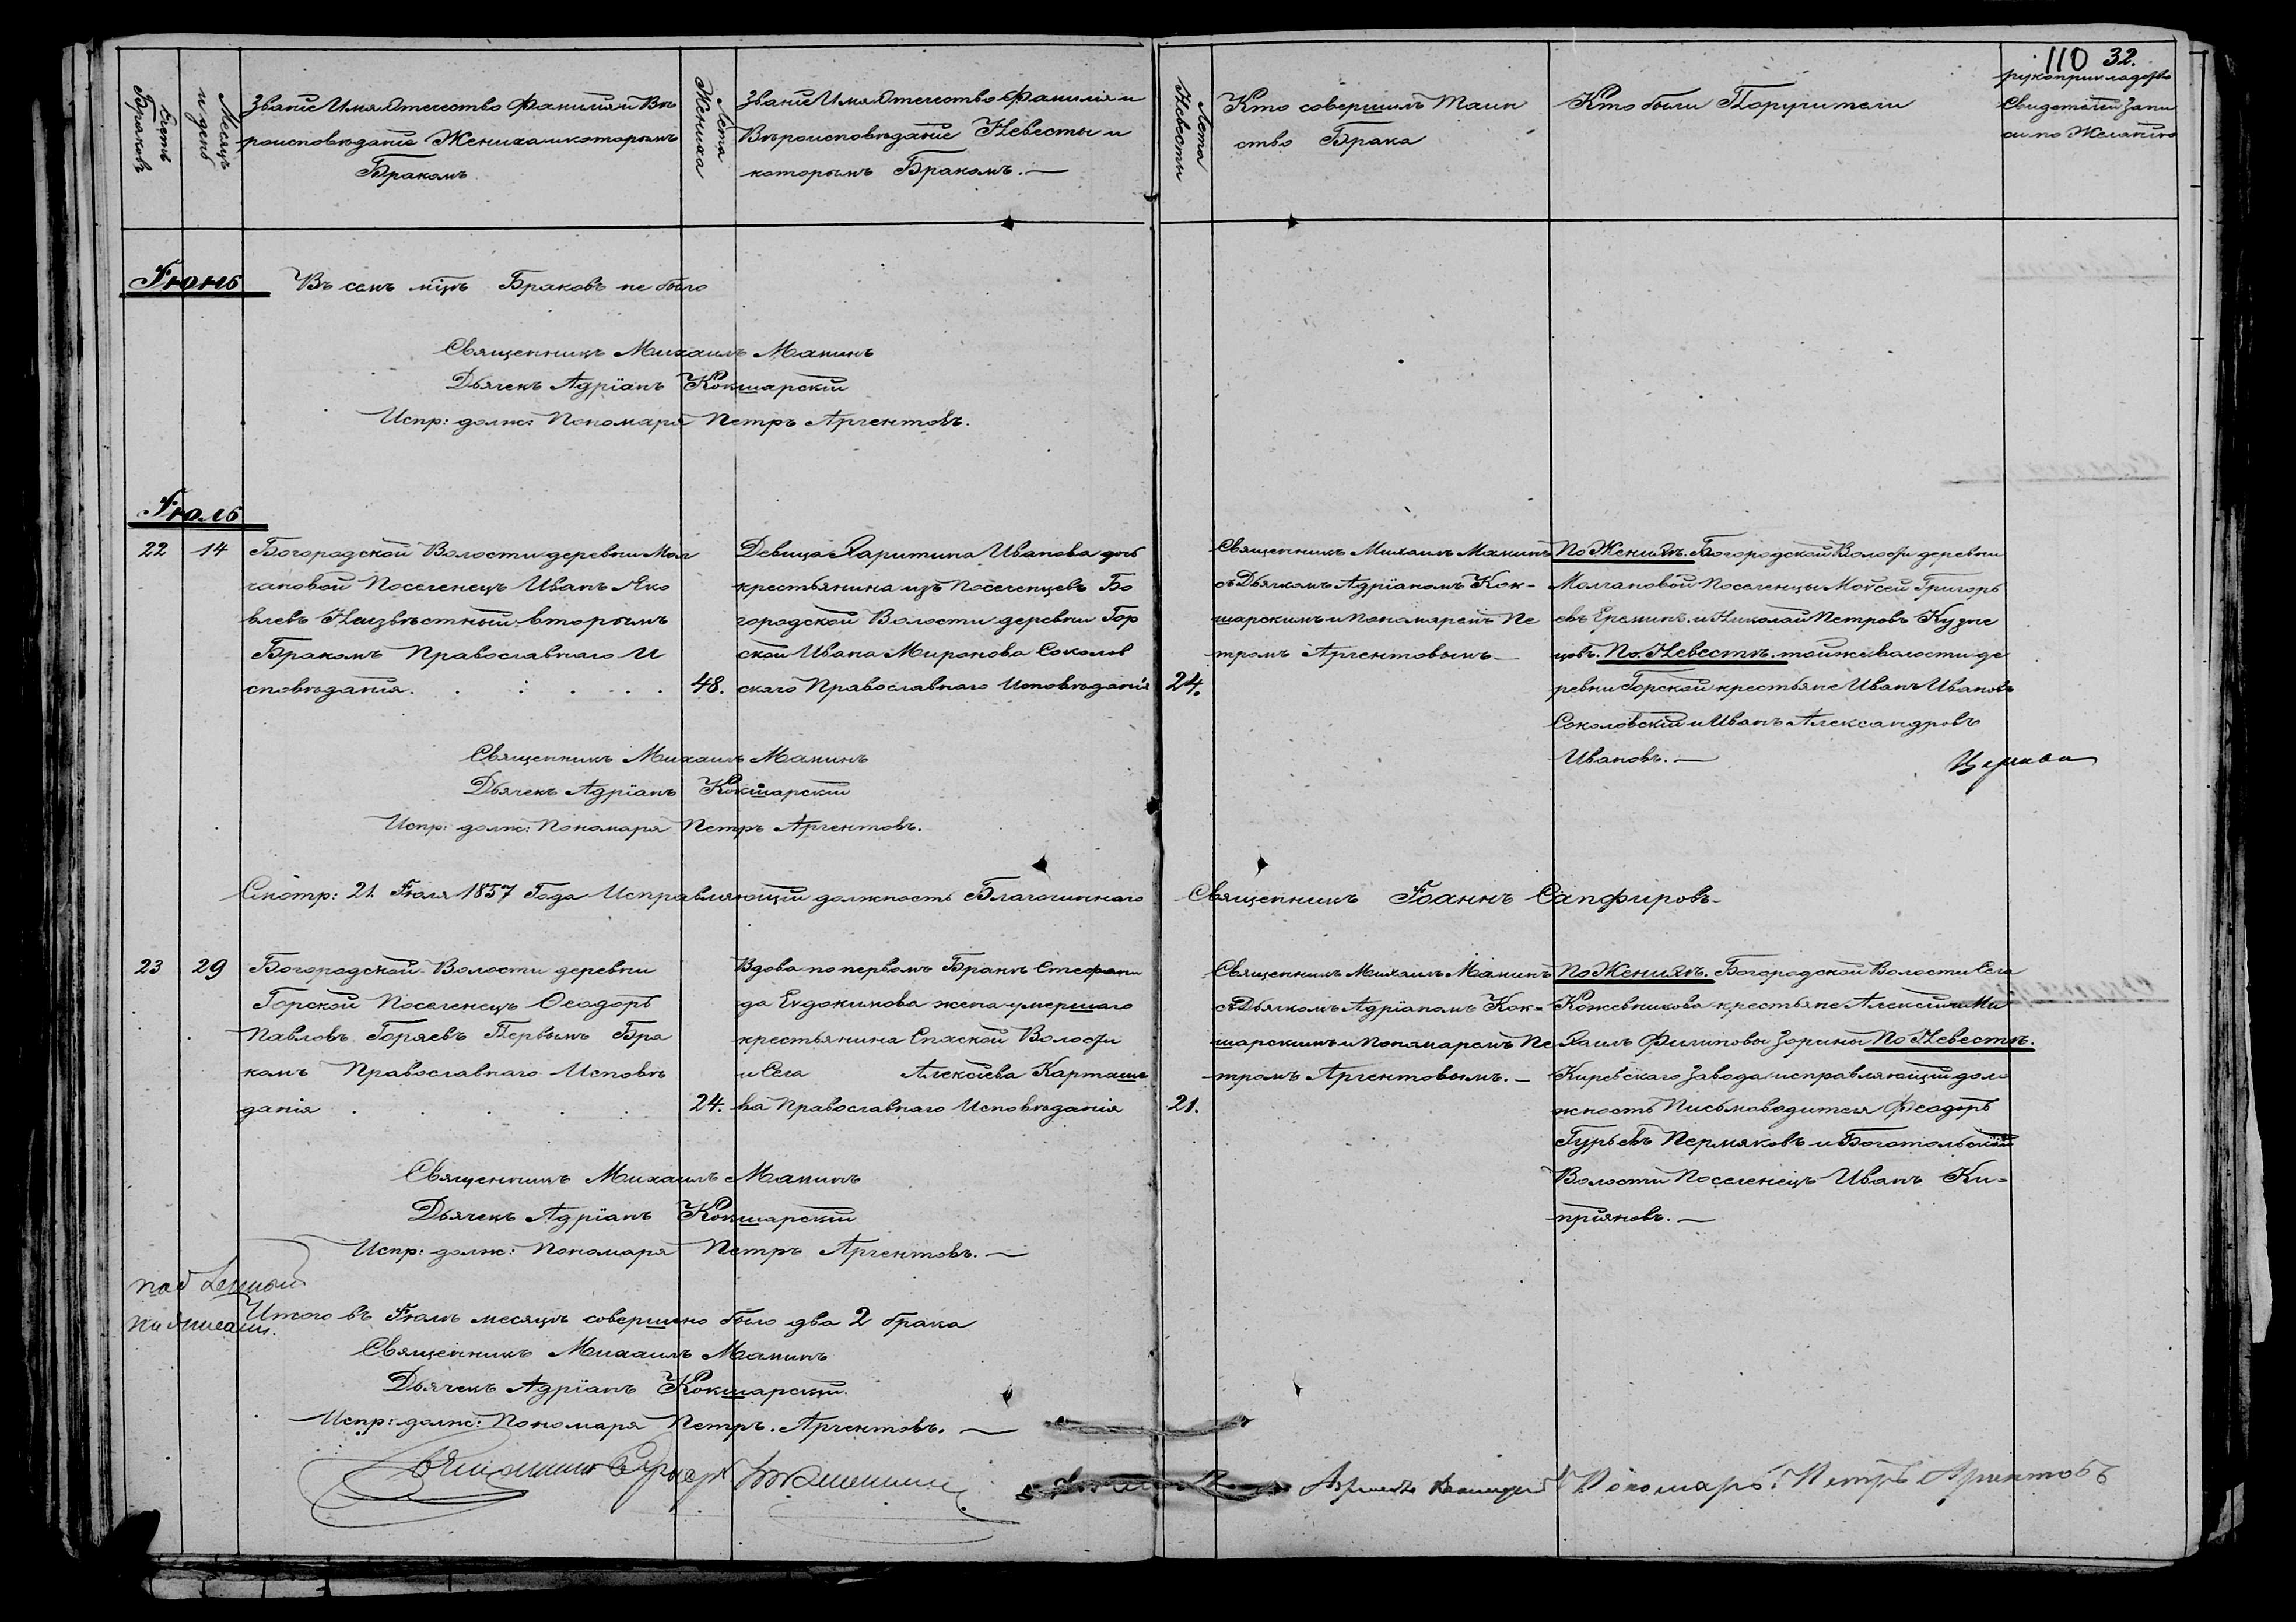 110 32.
Счетъ Браковъ
Месяцъ и день
Званіе Имя Отчество Фамилія и Вѣ
роисповѣданіе Жениха и которымъ
Бракомъ
Лета Жениха
Званіе Имя Отчество Фамилія и
Вѣроисповѣданіе Невесты и
которымъ Бракомъ. —
Лета Невесты
Кто совершилъ Таин
ство Брака
Кто были Поручители
рукоприкладство
Свидетелей запи
си по Желанію
Іюнь
Въ семъ мцѣ Браковъ не было
Священникъ Михаилъ Манинъ
Дьячекъ Адріанъ Кокшарскій
Испр: долж: Пономаря Петръ Аргентовъ.
Іюль
22 14
Богородской Волости деревни Мол
чановой Поселенецъ Иванъ Яко
влевъ Неизвѣстный вторымъ
Бракомъ Православнаго И
сповѣданія.
48.
Девица Харитина Иванова дочь
крестьянина изъ Поселенцевъ Бо
городской Волости деревни Гор
ской Ивана Миронова Соколов
скаго Православнаго Исповѣданія
24.
Священникъ Михаилъ Манинъ
съ Дьячкомъ Адріаномъ Кок-
шарскимъ и пономаремъ Пе
тромъ Аргентовымъ —
По Женихѣ. Богородской Волости деревни
Молчановой Поселенцы Мойсей Григорь
евъ Ереминъ. и Николай Петровъ Кузне
цовъ. По Невестѣ. тойже волости де
ревни Горской крестьяне Иванъ Ивановъ
Соколовскій и Иванъ Александровъ
Ивановъ. —
Священникъ Михаилъ Манинъ
Дьячекъ Адріанъ Кокшарскій
Испр: долж: Пономаря Петръ Аргентовъ.
Смотр: 21. Іюля 1857 Года Исправляющій должность Благочиннаго Священникъ Іоаннъ Сапфировъ
23 29
Богородской Волости деревни
Горской Поселенецъ Ѳеодоръ
Павловъ Горяевъ Первымъ Бра
комъ Православнаго Исповѣ
данія
24.
Вдова по первомъ Бракѣ Стефани
да Евдокимова жена умершаго
крестьянина Спаской Волости
и Села Алексіева Карташе
ва Православнаго Исповѣданія
21.
Священникъ Михаилъ Манинъ
съ Дьячкомъ Адріаномъ Кок-
шарскимъ и пономаремъ Пе
тромъ Аргентовымъ. —
По Женихѣ. Богородской Волости Села
Кожевникова крестьяне Алексій и Ми
хаилъ Филиповы Зорины По Невестѣ.
Киревскаго Завода исправляющій дол
жность Письмоводителя Феодоръ
Гурьевъ Пермяковъ и Боготольской
Волости Поселенецъ Иванъ Ки-
пріяновъ. —
Священникъ Михаилъ Манинъ
Дьячекъ Адріанъ Кокшарскій
Испр: долж: Пономаря Петръ Аргентовъ. —
Итого въ Іюлѣ месяцѣ совершено было два 2 брака
Священникъ Михаилъ Манинъ
Дьячекъ Адріанъ Кокшарскій.
Испр: долж: Пономаря Петръ. Аргентовъ. —
Пономарь Петръ Аргентовъ